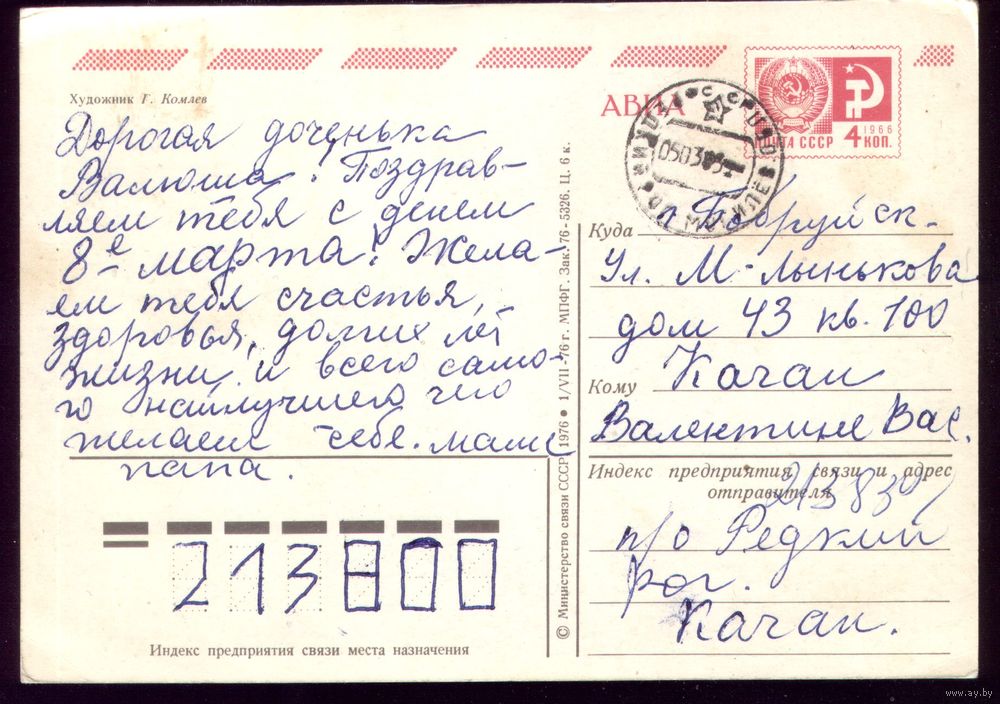 Художник Г. Комлев
Дорогая доченька
Валюша! Поздрав-
ляем тебя с денем
8е марта! Жела-
ем тебя счастья,
здоровья, долгих лет
жизни и всего само-
го наилучшего чего
желаем себе. мама
папа.
213800
Индекс предприятия связи места назначения
© Министерство связи СССР. 1976 ● 1/VII-76 г. МПФГ. Зак. 76-5326. Ц. 6 к.
АВИА
1966
ПОЧТА СССР 4 КОП.
Куда г. Бобруйск.
ул. М-Лынькова
дом 43 кв. 100
Кому Качан
Валентине Вас.
Индекс предприятия связи и адрес
отправителя
п/о Редкий
рог.
Качан.
www.ay.by